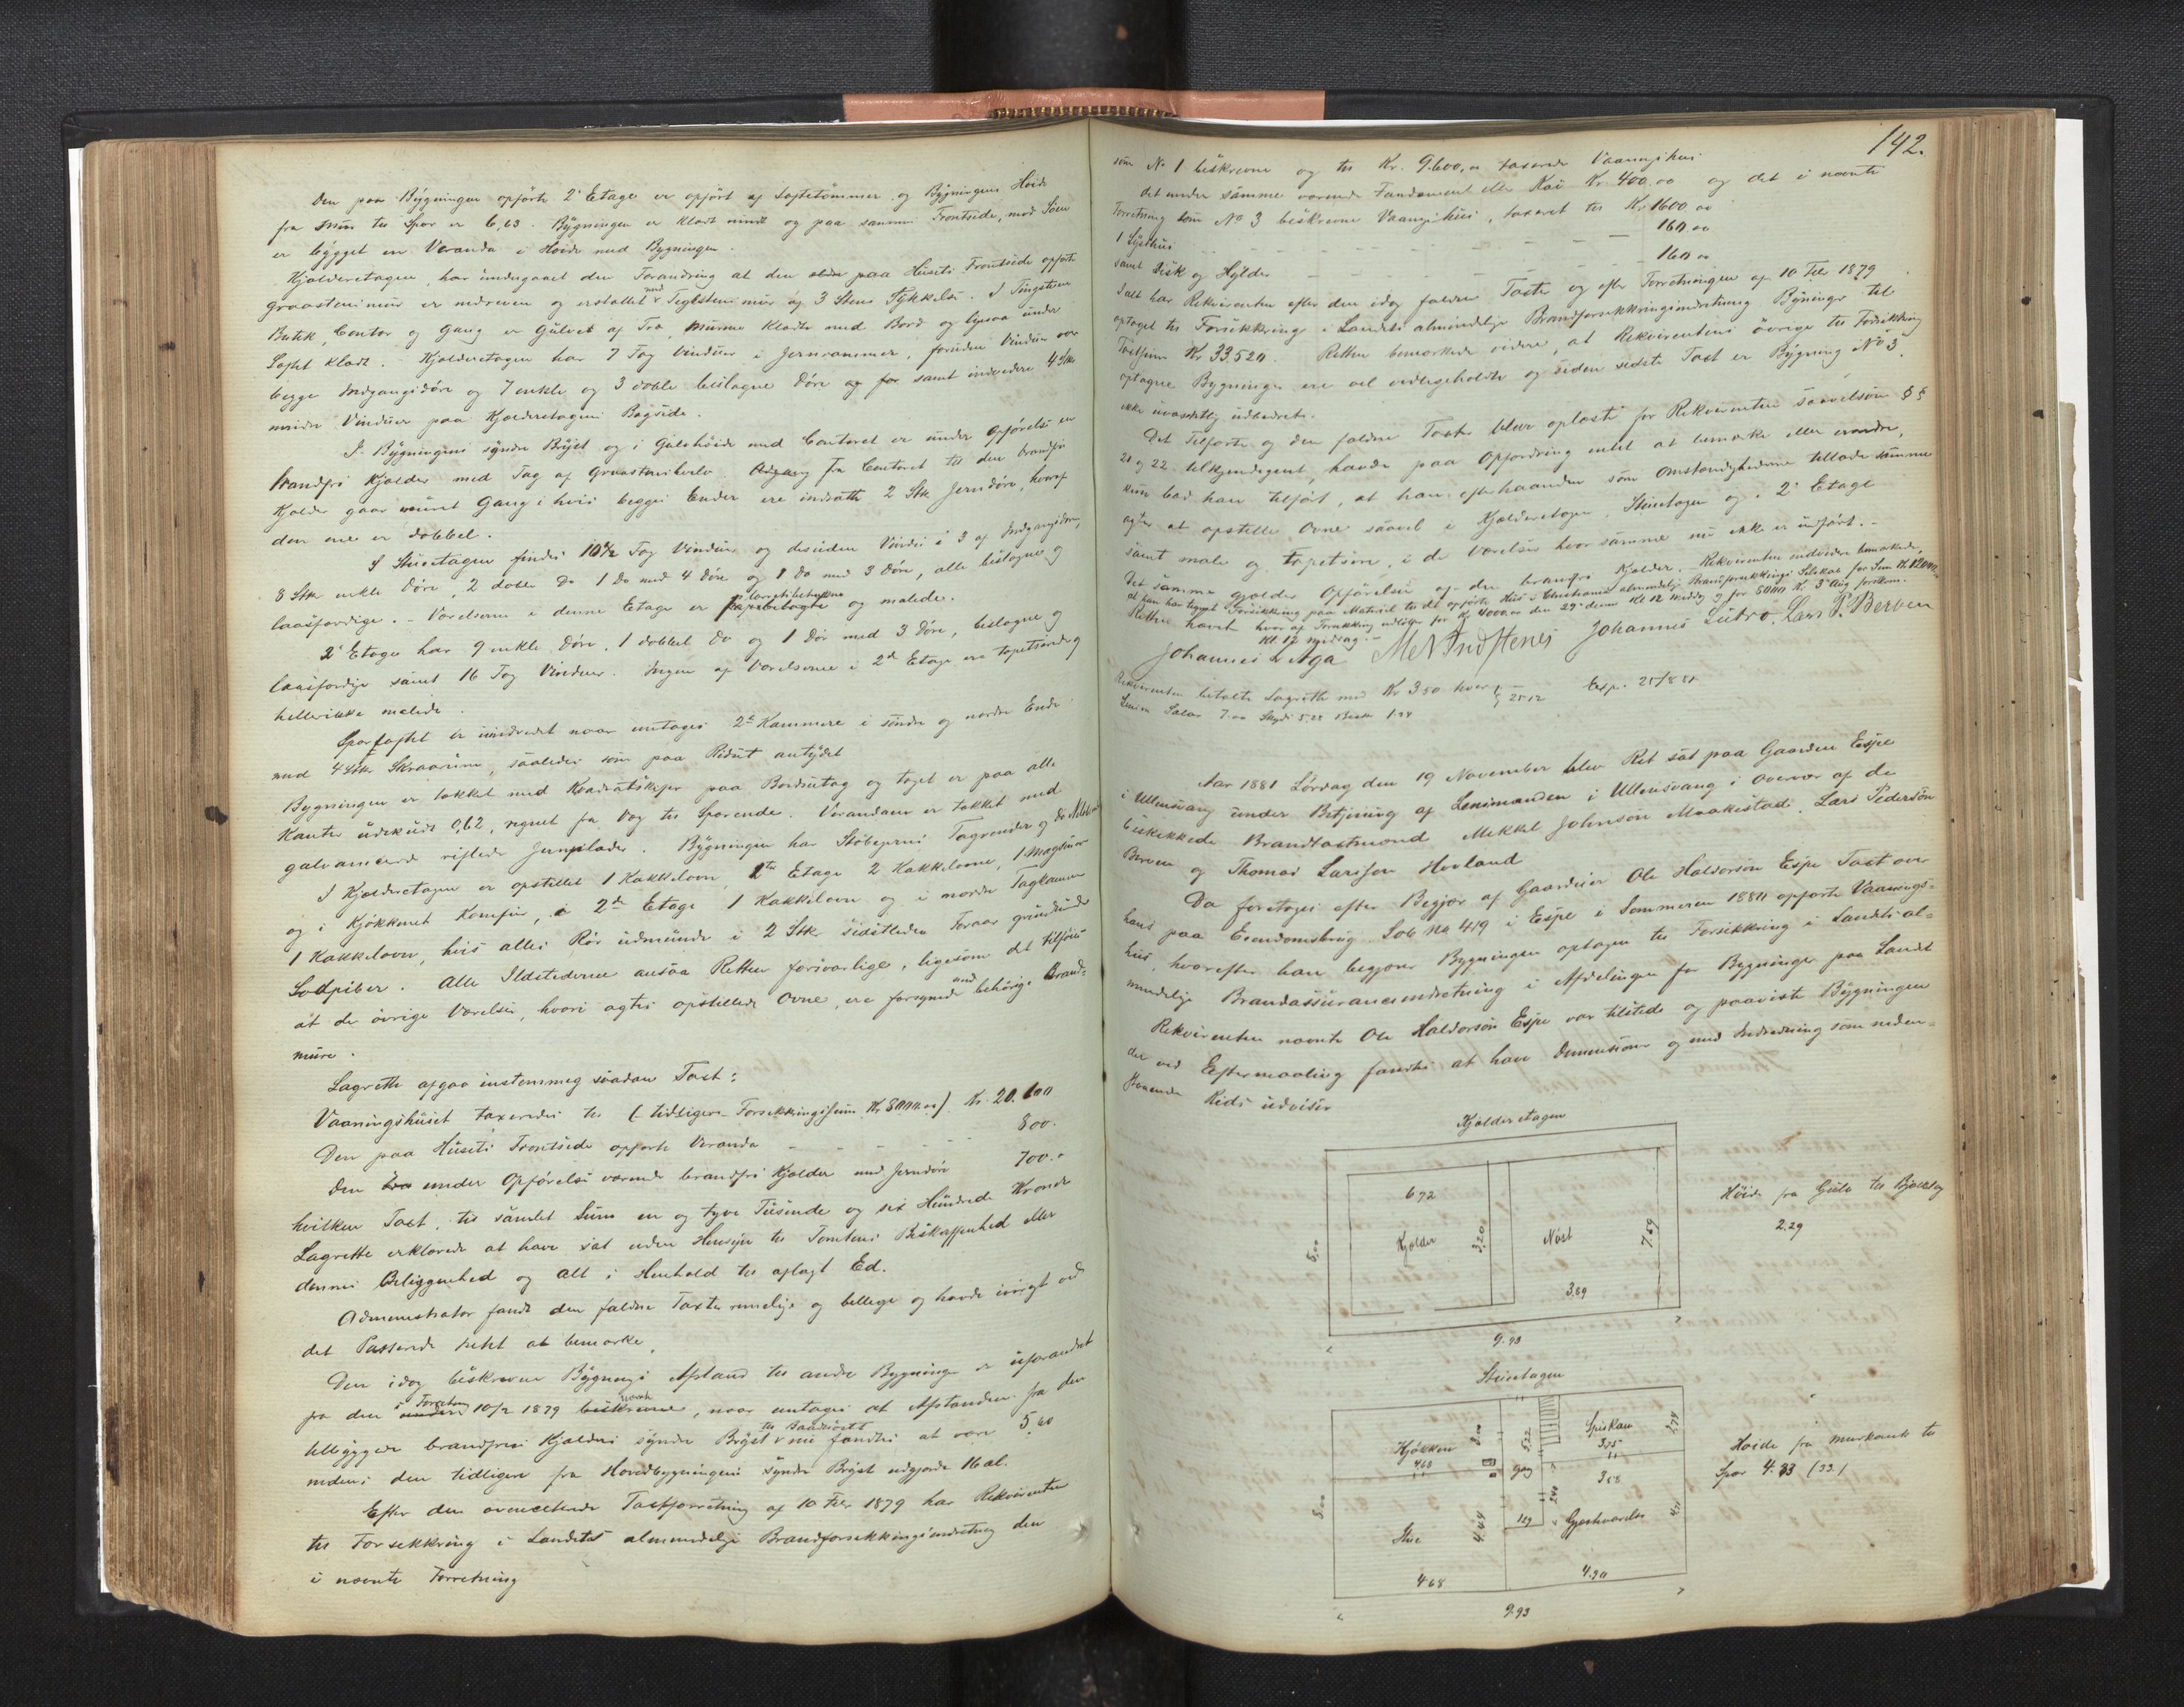 Den paa Bygningen opførte 2' Etage er opført af Loftetømmer og Bygningens Høide
fra Muur til Spær er 6,63. Bygningen er klædt rundt og paa samme Frontside, mod Søen
er bygget en Veranda i Høide med Bygningen.
Kjælderetagen, har undergaaet den Forandring at den paa Husets Frontside opførte
Graastensmur er nedreven og erstattet med Teglstensmur af 3 Stens Tykkelse. I
Butik, Contor og Gang er Gulvet af Træ, Murene klædte med Bord og ligesaa under
Loftet klædt. Kjælderetagen har 7 Fag Vinduer i Jernrammer, foruden Vinduer over
begge Indgangsdøre og 7 enkle og 3 doble beslagne Døre og for samt indvidere 4 Stk
mindre Vinduer paa Kjælderetagens Bagside.
I Bygningens søndre Bryst og i Gulvhøide med Contoret er under Opførelse en
brandfri Kjælder med Tag af Graastenshvelv. Adgang fra Contoret til den brandfri
Kjælder gaar muret Gang i hvis begge Ender ere indsatte 2 Stk Jerndøre, hvoraf
den ene er dobbel.
I Stueetagen findes 10½ Fag Vinduer og desuden Vindu i 3 af Indgangsdøre,
8 Stk enkle Døre, 2 doble Do 1 Do med 4 Døre og 1 Do med 3 Døre, alle beslagne og
laasfærdige. - Værelserne i denne Etage er og malede.
2' Etage har 9 enkle Døre, 1 dobbel Do og 1 Dør med 3 Døre, beslagne og
laasfærdige samt 16 Fag Vinduer. Ingen af Værelserne i 2den Etage ere tapetserede og
heller ikke malede.
Sparloftet er uindredet naar undtages 2de Kammere i søndre og nordre Ende
med 4 Stk Skraarum, saaledes som paa Ridset antydet
Bygningen er tækket med Kvadratskifer paa Bordsutag og taget er paa alle
Kanter udskudt 0,62, regnet fra Væg til Spærende. Verandaen er tækket med
galvaniserede riflede Jernplader. Bygningen har Støbejerns Tagrender og do Nedløb
I Kjælderetagen er opstillet 1 Kakkelovn, 1ste Etage 2 Kakkelovne, 1 Magasin
og i Kjøkkenet Komfur, i 2den Etage 1 Kakkelovn og i nordre Tagkammer
1 Kakkelovn, hvis alles Rør udmunde i 2 Stk sidstleden Foraar grundmurede
Sodpiber. Alle Ildstederne ansaa Retten forsvarlige, ligesom det tilføies
at de øvrige Værelser, hvori agtes opstillede Ovne, ere forsynede med behørige Brand=
mure.
Lagrette afgav instemmig saadan Taxt:
Vaaningshuset taxeredes til (tidligere Forsikkringssum Kr 8000.00) Kr. 20.100
Den paa Husets Frontside opførte Veranda - - - - 800.
Den under Opførelse værende brandfri Kjælder med Jerndøre 700.
hvilken Taxt, til samlet Sum en og tyve Tusinde og sex Hundrede Kroner
Lagrette erklærede at have sat uden Hensyn til Tomtens Beskaffenhed eller
dennes Beliggenhed og alt i Henhold til aflagt Ed.
Administrator fandt den faldne Taxt rimelig og billige og havde iøvrigt ved
det Passerede Intet at bemærke.
Den idag beskrevne Bygnings Afstand til andre Bygninger er uforandret
fra den i Forretning 10/2 1879 nævnte, naar undtages at Afstanden fra den
tilbyggede brandfrie Kjælders søndre Bryst til Baadnøstet nu fandtes at være 5,60
medens den tidligere fra Hovedbygningens søndre Bryst udgjorde 16 al.
Efter den ovennævnte Taxtforretning af 10 Febr 1879 har Rekvirenten
til Forsekkring i Landets almindelige Brandforsekkringsindretning den
i nævnte Forretning
142.
som No 1 beskrevne og til Kr. 9.600,00 taxerede Vaaningshus
det under samme værende Fundament eller Kai Kr. 400.00 og det i nævnte
Forretning som No 3 beskrevne Vaaningshus, taxeret til Kr 1600.00
1 Lysthus - - - - 160.00
samt Disk og Hylder - - - - 160.00
Ialt har Rekvirenten efter den idag faldne Taxt og efter Forretningen af 10 Febr 1879
optaget til Forsikkring i Landets almindelige Brandforsekkringsindretning Bygninger til
Totalsum Kr 33.520. Retten bemærkede videre, at Rekvirentens øvrige til Forsikkring
optagne Bygninger ere vel vedligeholdte og siden sidste Taxt er Bygning No 5
ikke uvæsentlig udbedret.
Det Tilførte og den faldne Taxt blev oplæst for Rekvirenten saavelsom §§
21 og 22 tilkjendegivet, havde paa Opfordring intet at bemærke eller erindre,
kun bad han tilført, at han efterhaanden som Omstændighederne tillader samme
agter at opstille Ovne saavel i Kjælderetagen, Stueetagen og i 2' Etage
samt male og tapetsere, i de Værelser hvor samme nu ikke er udført. -
Det samme gjælder Opførelse af den brandfri Kjælder. - Rekvirenten endvidere bemærkede,
at han har tegnet Forsikkring paa Materiel til det opførte Hus i Christiania almindelige Brandforsekkrings Selskab for Sum Kr 12000.
hvor af Forsikkring udløber for Kr 4000.00 den 29de dennes Kl 12 Middag og for 8000 Kr. 3' Aug førstkom.
Retten hævet Kl. 12 Middag. -
Johannes L Aga M N Indstenes Johannes Lutro. Lars P. Berven
Rekvirenten betalte Lagrette med Kr 3.50 hver Exp. 25/8 81
Lensm Salær 7.00 Skyds 5.28
Aar 1881 Lørdag den 19 November blev Ret sat paa Gaarden Espe
i Ullensvang under Betjening af Lensmanden i Ullensvang i Overvær af de
beskikkede Brandtaxtmænd Mekkel Johnson Maakestad, Lars Pedersøn
Berven og Thomas Larssøn Hovland
Da foretoges efter Begjær af Gaardeier Ole Haldorsøn Espe Taxt over
hans paa Eiendomsbrug Løb No 419 i Espe i Sommeren 1880 opførte Vaanings=
hus, hvorefter han begjærer Bygningen optagen til Forsikkring i Landets al=
mindelige Brandassuranceindretning i Afdelingen for Bygninger paa Landet
Rekvirenten nævnte Ole Haldorsøn Espe var tilstede og paaviste Bygningen
der ved Eftermaaling fandtes at have Dimensioner og med Indredning som neden=
staaende Rids udviser
Kjælderetagen
6,72
Kjælder
3,20
Nøst
7,69
8,00
3,89
9.93
Høide fra Gulv til Bjælkelag
2.29
Stueetagen
Kjøkken
4,68
3.00
5,22
Spiskam
3,35
2,74
Gang
3,58
8.00
Stue
4.44
2,40
129
Gjæsteværelse
4,71
4.68
4.90
9.93
Høide fra Murkant til
Spær 4.33 (33)